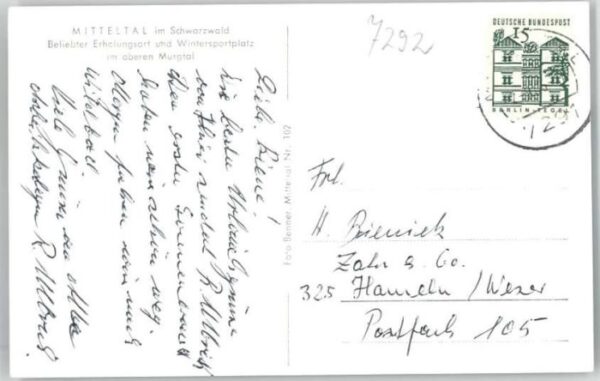 MITTELTAL im Schwarzwald
Beliebter Erholungsort und Wintersportplatz
im oberen Murgtal
7292
DEUTSCHE BUNDESPOST
15
BERLIN-TEGEL
Liebe Biene!
die besten Urlaubsgrüsse
von hier sendet R. Ullrich
Den ersten Sonnen
haben wir schon weg.
Morgen fahren wir nach
Wildbad.
Viele Grüsse an alle
R. Ullrich
Foto Benner, Mitteltal Nr. 102
Frl.
H. Bieniek
Zahn & Co.
325 Hameln / Weser
Postfach 105